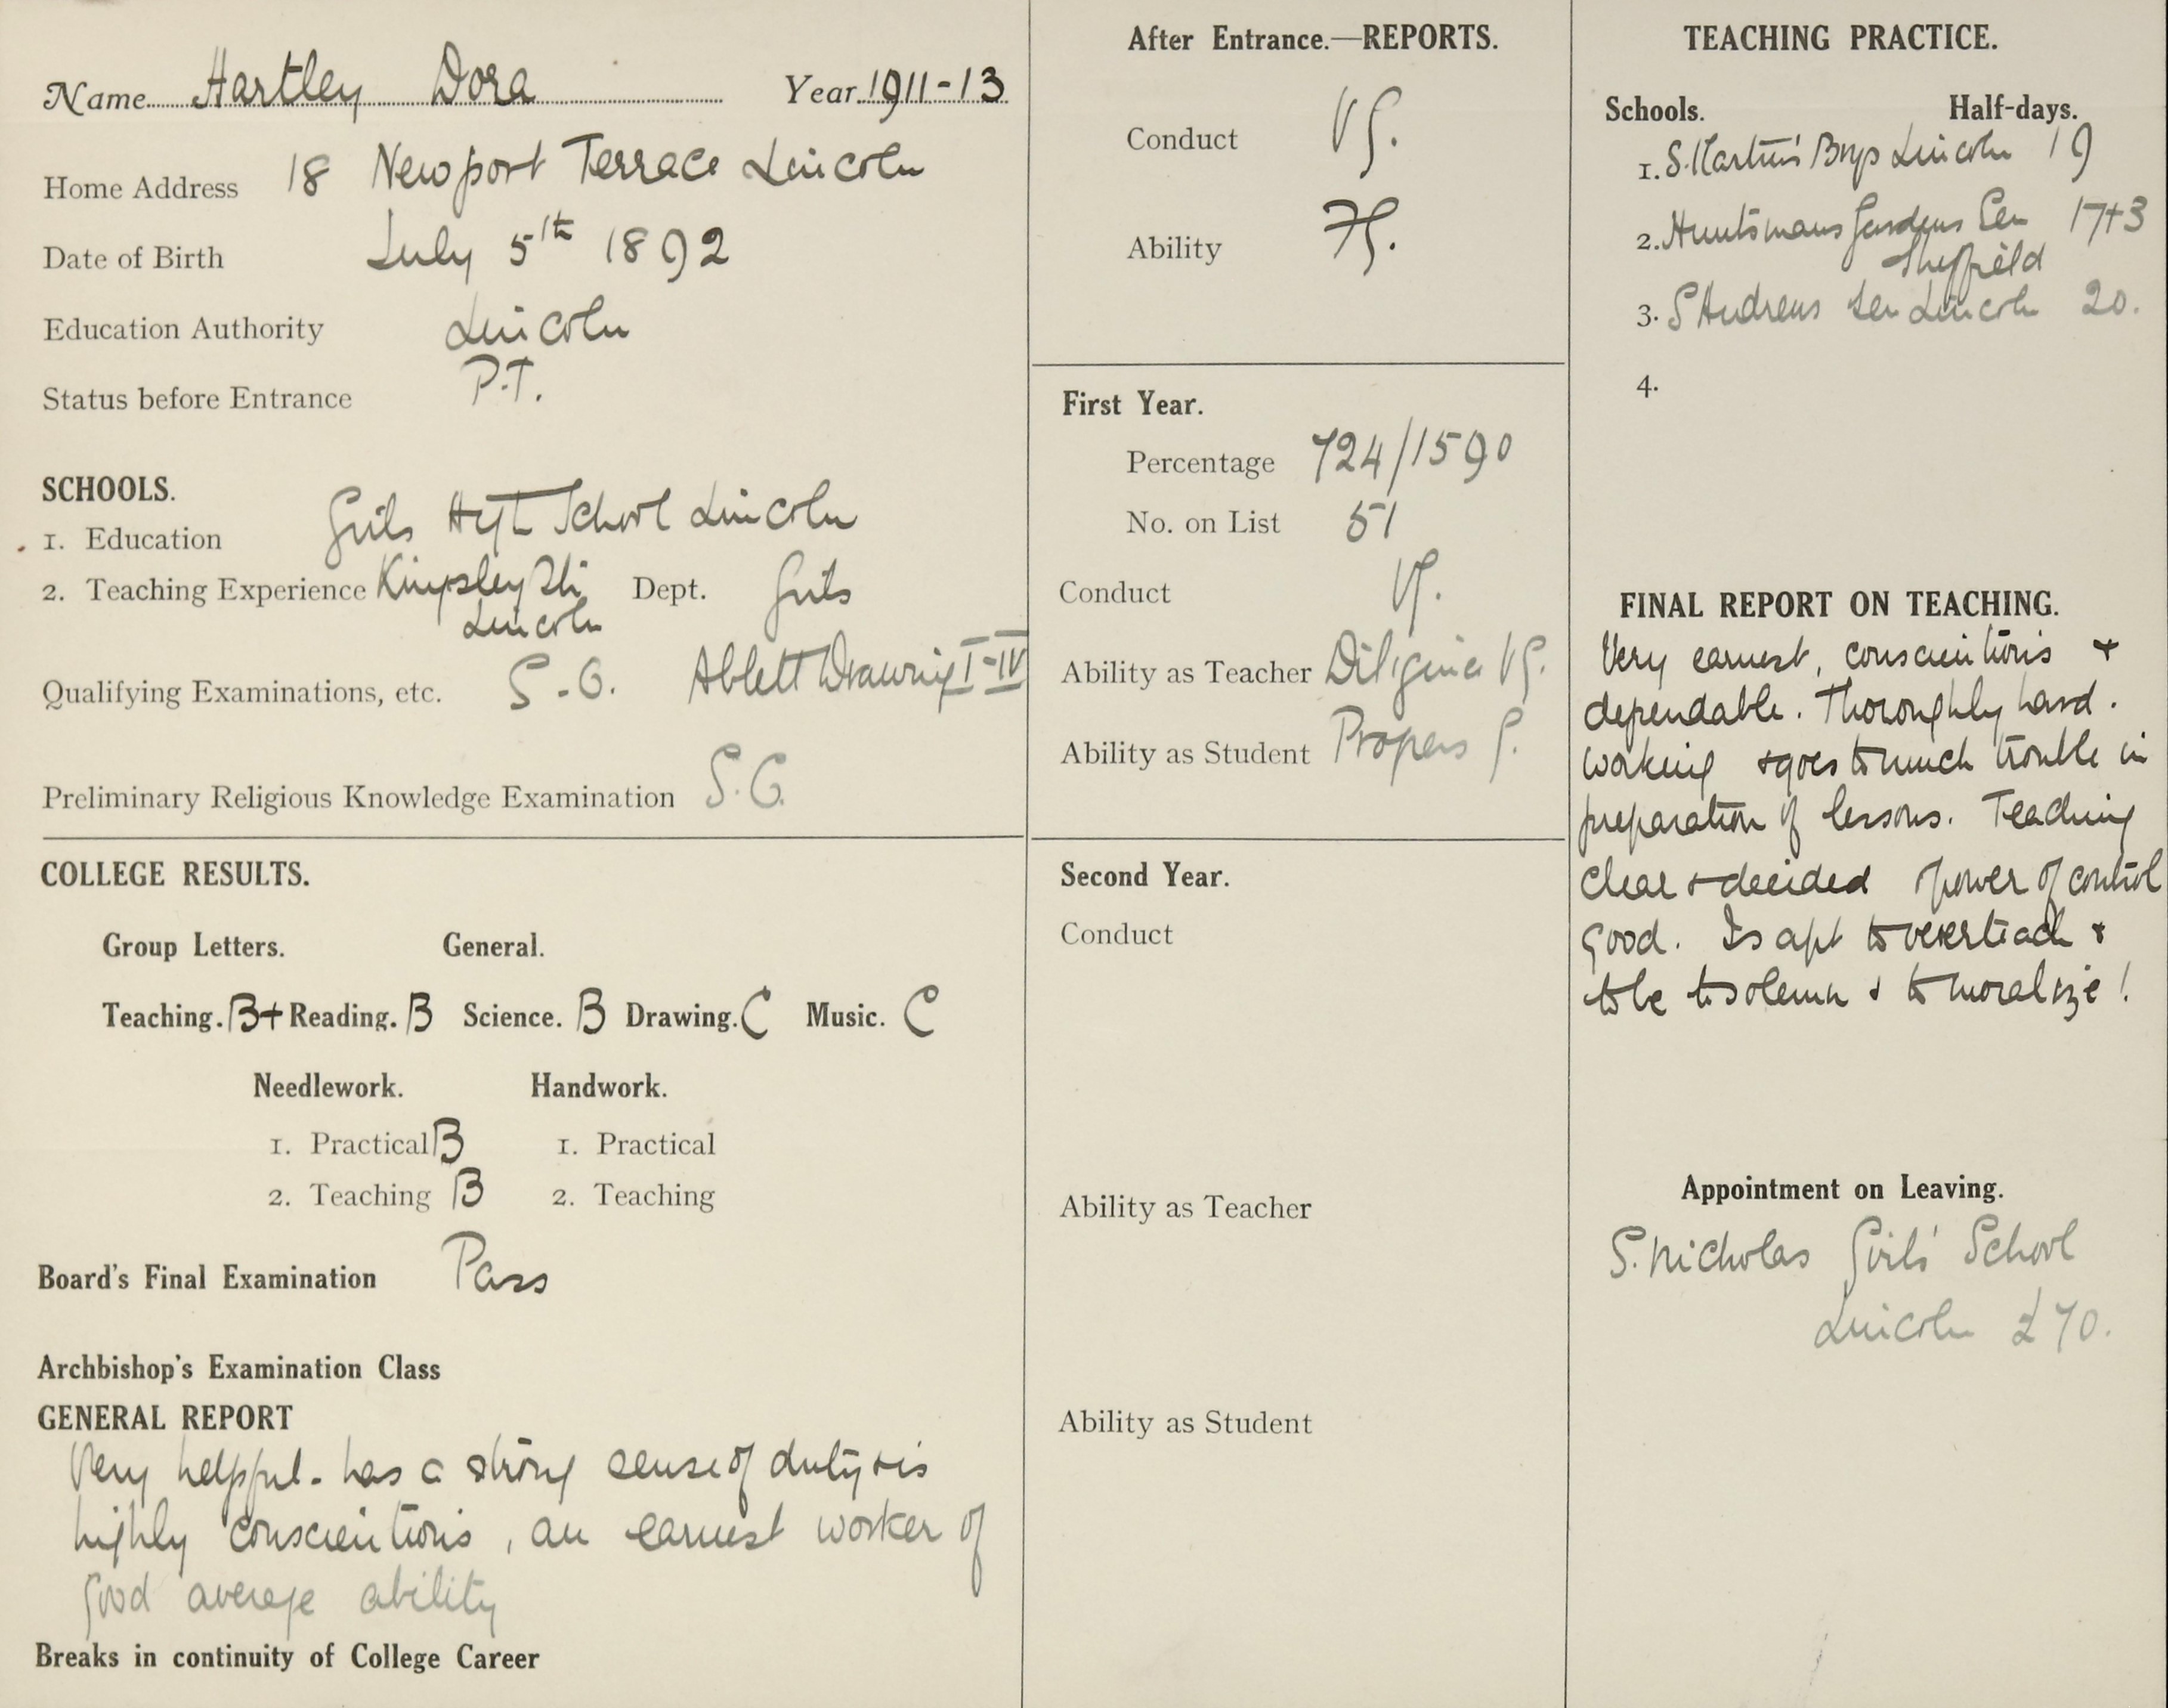 Name Hartley Dora Year 1911-13
Home Address 18 Newport Terrace Lincoln
Date of Birth July 5th 1892
Education Authority Lincoln
Status before Entrance P.T.
SCHOOLS.
1. Education Girls High School Lincoln
2. Teaching Experience Kingsley St Dept. Girls
Lincoln
Qualifying Examinations, etc. S.C. Ablett Drawing I-IV
Preliminary Religious Knowledge Examination S.C.
COLLEGE RESULTS.
Group Letters. General.
Teaching. B+ Reading. B Science. B Drawing. C Music. C
Needlework. Handwork.
1. Practical B 1. Practical
2. Teaching B 2. Teaching
Board's Final Examination Pass
Archbishop's Examination Class
GENERAL REPORT
Very helpful - has a strong sense of duty & is
highly conscientious, an earnest worker of
good average ability
Breaks in continuity of College Career
After Entrance.—REPORTS.
Conduct VG.
Ability FG.
First Year.
Percentage 724/1590
No. on List 51
Conduct VG.
Ability as Teacher Diligence VG.
Ability as Student Progress G.
Second Year.
Conduct
Ability as Teacher
Ability as Student
TEACHING PRACTICE.
Schools. Half-days.
1. S. Martin's Boys Lincoln 19
2. Huntsmans Gardens Sen 17+3
Sheffield
3. S Andrews Sen Lincoln 20.
4.
FINAL REPORT ON TEACHING.
Very earnest, conscientious &
dependable. Thoroughly hard.
working & goes to much trouble in
preparation of lessons. Teaching
clear & decided power of control
good. Is apt to overteach &
to be too solemn & to moralize!
Appointment on Leaving.
S. Nicholas Girls' School
Lincoln £70.